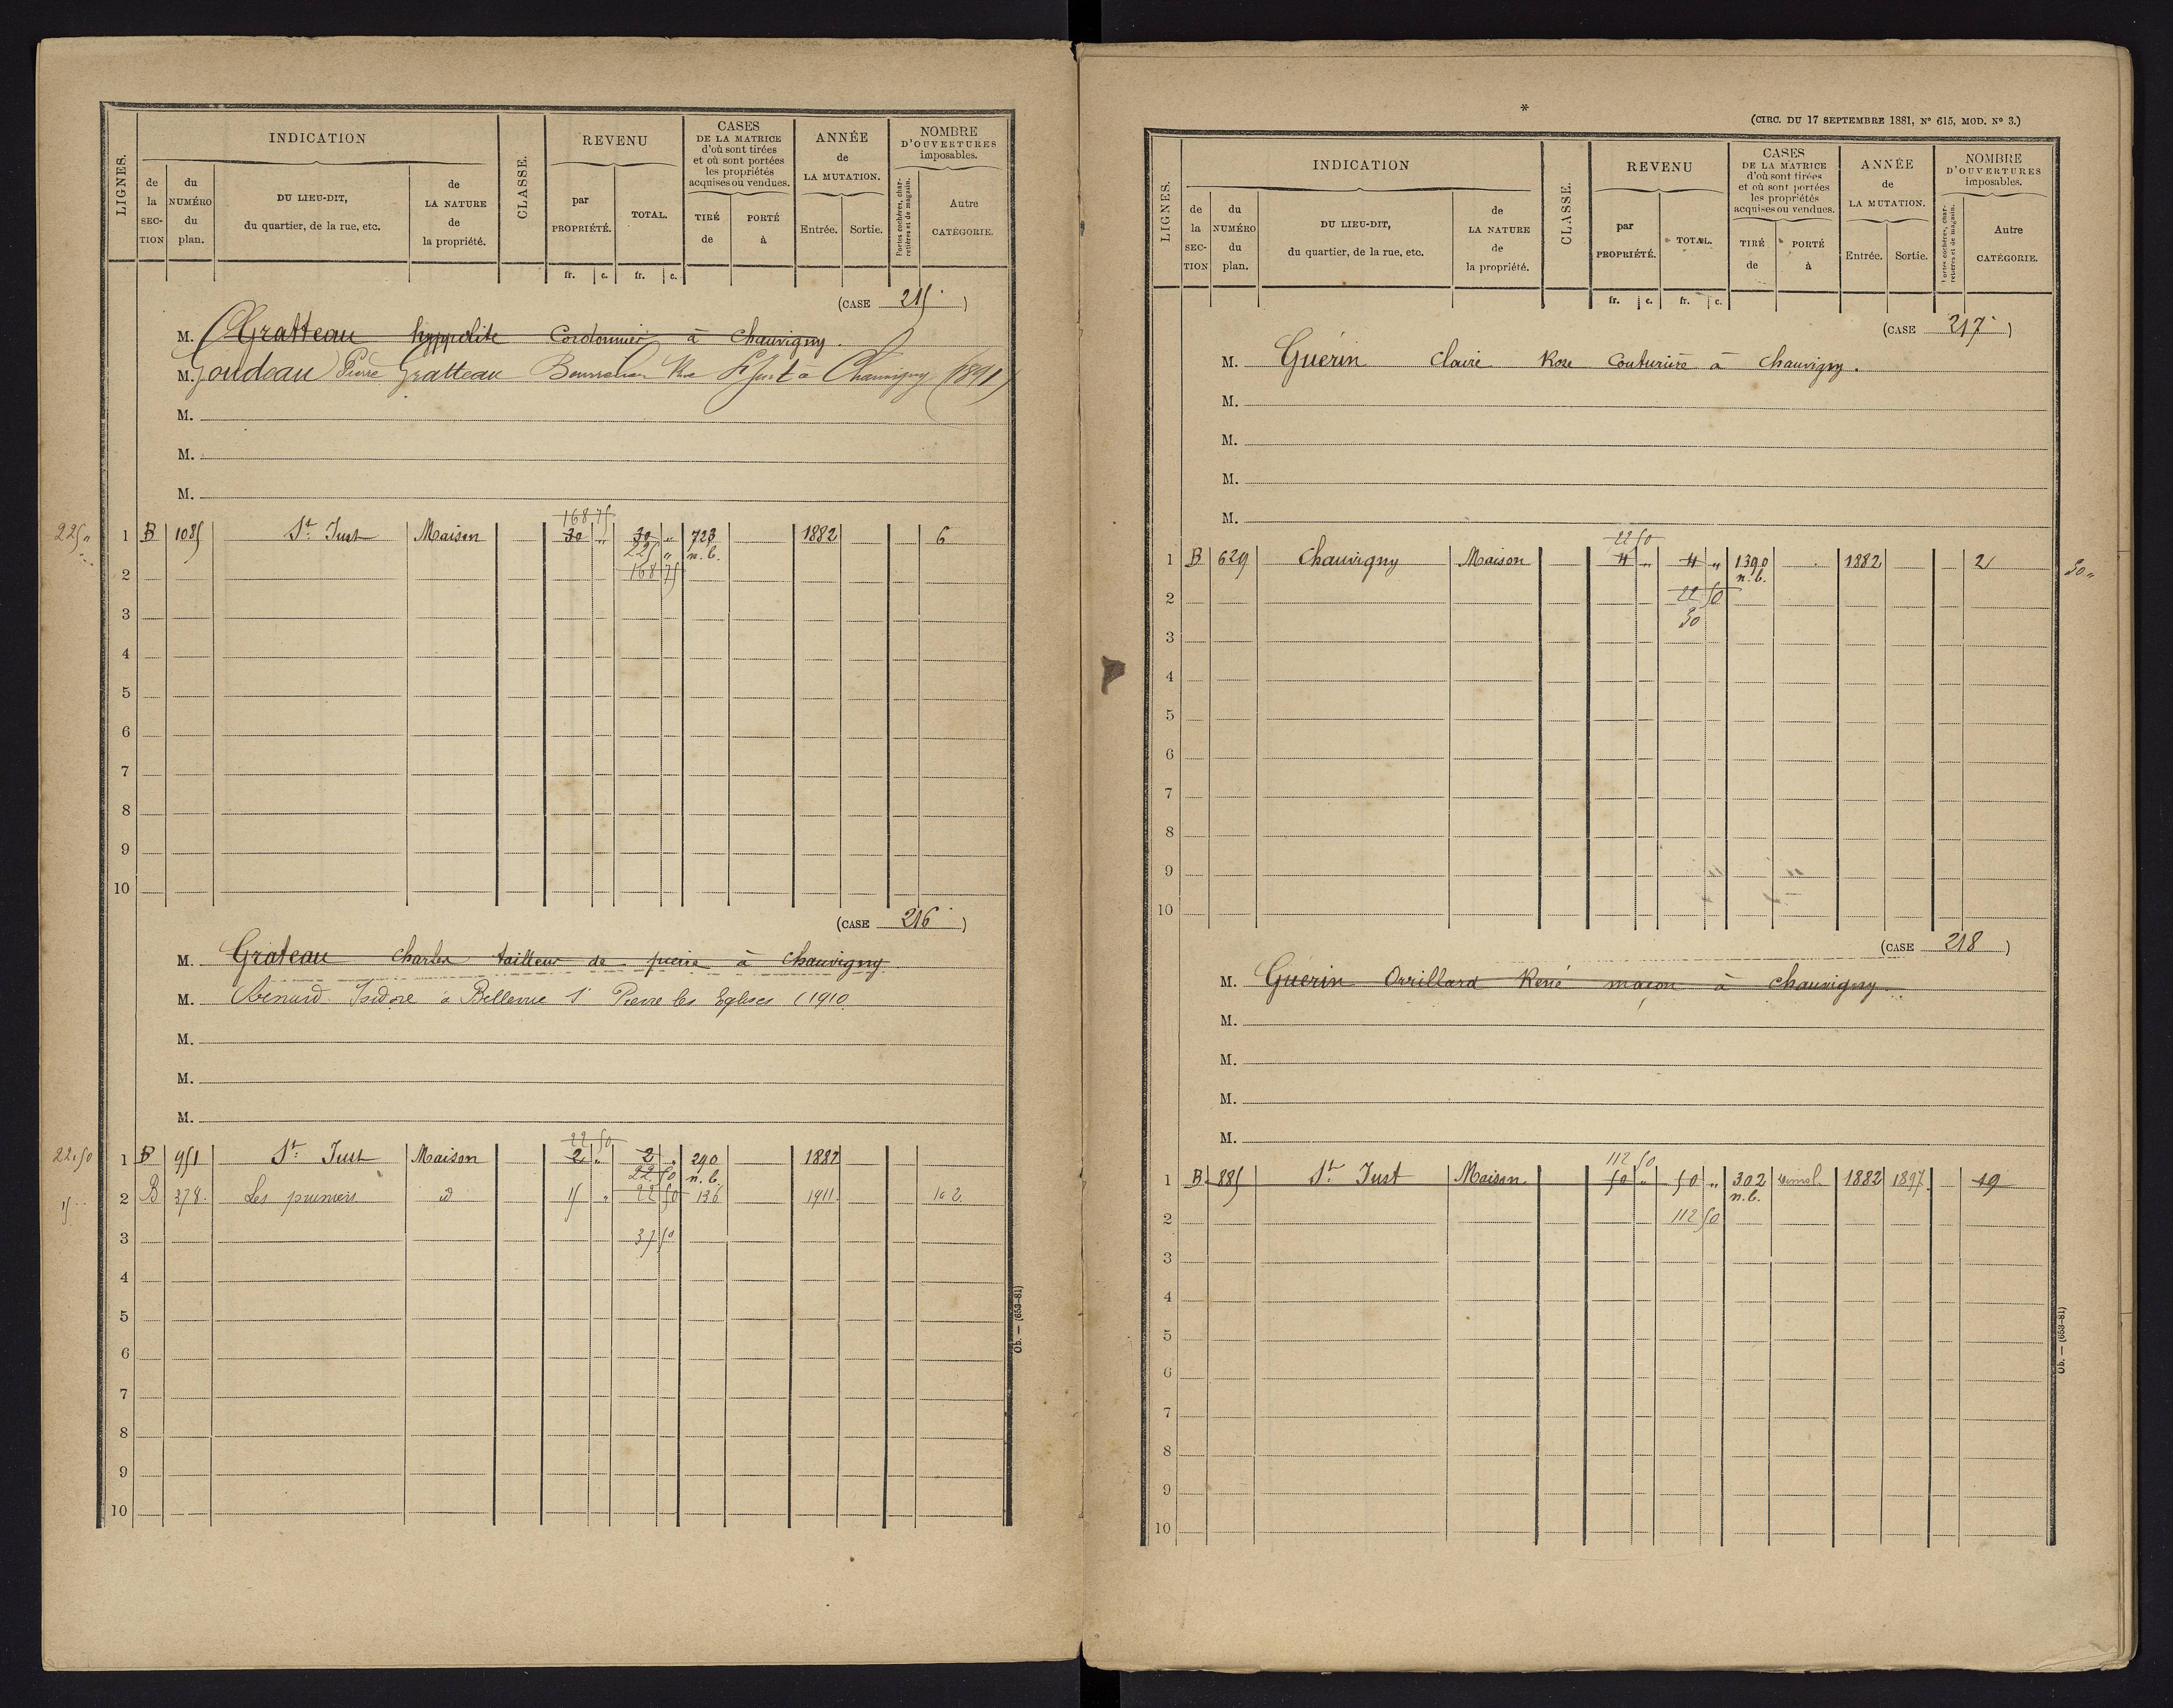 LIGNES.
INDICATION
de la SECTION
du NUMÉRO du plan.
DU LIEU-DIT, du quartier, de la rue, etc.
de LA NATURE de la propriété.
CLASSE.
REVENU
par PROPRIÉTÉ.
TOTAL.
fr. c. fr. c.
CASES DE LA MATRICE d'où sont tirées et où sont portées les propriétés acquises ou vendues.
TIRÉ de
PORTÉ à
ANNÉE de LA MUTATION.
Entrée. Sortie.
NOMBRE D'OUVERTURES imposables.
Portes cochères, charretières et de magasin.
Autre CATÉGORIE.
(CASE 215)
M. Gratteau hyppolite Cordonnier à Chauvigny.
M. Goudeau Pierre Gratteau Rue St Just à Chauvigny (1891)
M.
M.
M.
168 75
225 " 1 B 1085 St Just Maison 30 " 30 " 723 1882 6
225 " n.b.
2 168 75
3
4
5
6
7
8
9
10
(CASE 216)
M. Grateau Charles tailleur de pierre à Chauvigny
M. Isidore à Bellevue St Pierre les Eglises (1910
M.
M.
M.
22 50
22,50 1 B 951 St Just Maison 2 " 2 " 290 1882
22 50 n.b.
15 2 B 378 Les pruniers d 15 " 22 50 136 1911 1 à 2
3 37 50
4
5
6
7
8
9
10
Ob. — (653-81)
*
(CIRC. DU 17 SEPTEMBRE 1881, No 615, MOD. No 3.)
LIGNES.
INDICATION
de la SECTION
du NUMÉRO du plan.
DU LIEU-DIT, du quartier, de la rue, etc.
de LA NATURE de la propriété.
CLASSE.
REVENU
par PROPRIÉTÉ.
TOTAL.
fr. c. fr. c.
CASES DE LA MATRICE d'où sont tirées et où sont portées les propriétés acquises ou vendues.
TIRÉ de
PORTÉ à
ANNÉE de LA MUTATION.
Entrée. Sortie.
NOMBRE D'OUVERTURES imposables.
Portes cochères, charretières et de magasin.
Autre CATÉGORIE.
(CASE 217)
M. Guérin Claire Rose Couturière à Chauvigny.
M.
M.
M.
M.
22 50
1 B 629 Chauvigny Maison 4 " 4 " 1390 1882 2 30 "
n.b.
2 22 50
30
3
4
5
6
7
8
9
10
(CASE 218)
M. Guerin Orrillard René maçon à Chauvigny
M.
M.
M.
M.
112 50
1 B 885 St Just Maison 50 " 50 " 302 démol. 1882 1897 19
n.b.
2 112 50
3
4
5
6
7
8
9
10
Ob. — (653-81)